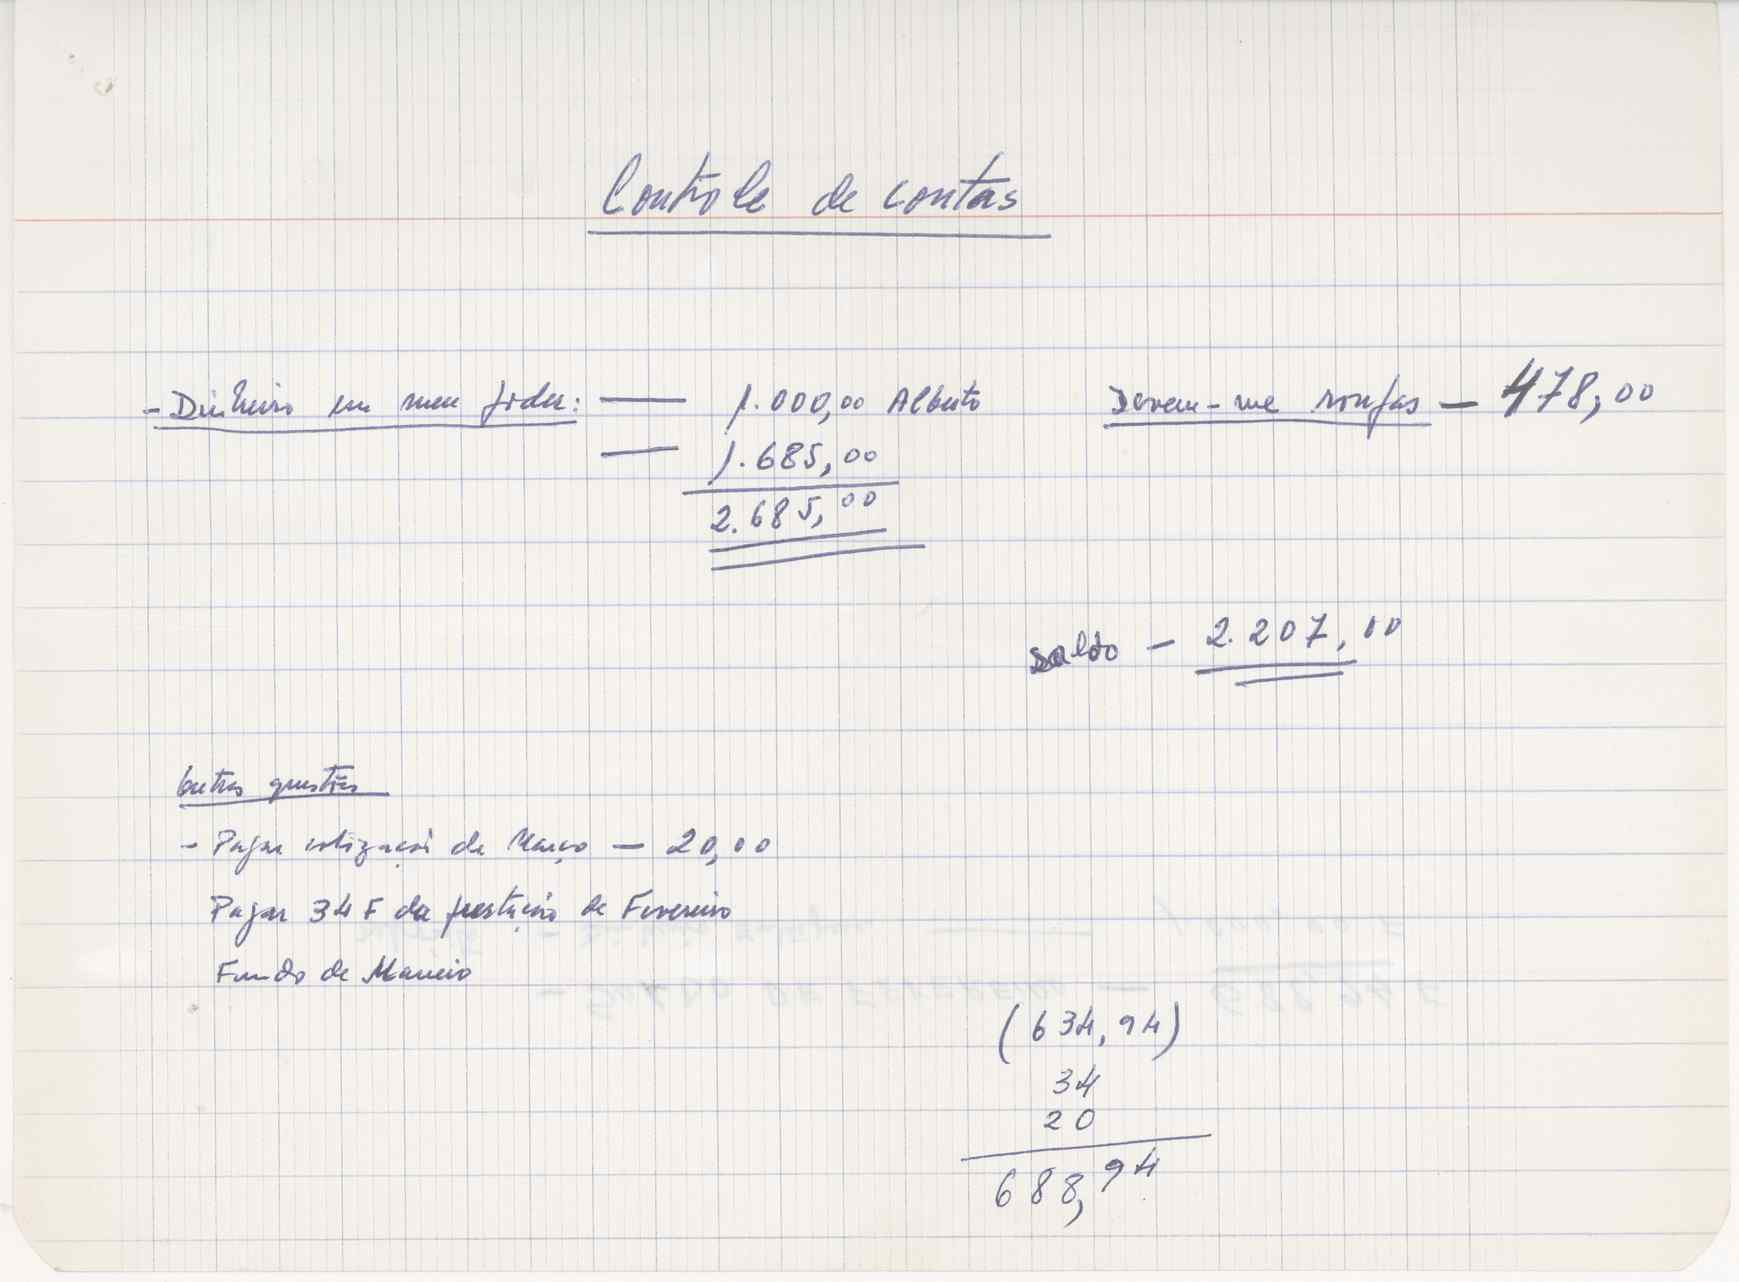 Controle de contas
- Dinheiro em meu poder: — 1.000,00 Alberto
Devem-me roupas — 478,00
— 1.685,00
2.685,00
saldo — 2.207,00
Outras questões
- Pagar cotização de Março — 20,00
Pagar 34 F da prestação de Fevereiro
Fundo de Maneio
(634,94)
34
20
688,94